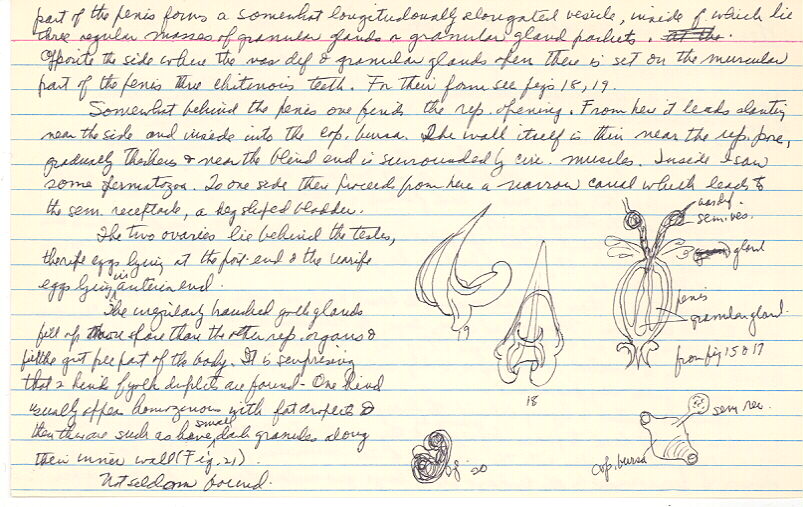 part of the penis forms a somewhat longitudonally elongated vesicle, inside of which lie
three regular masses of granular glands or granular gland pockets.
Opposite the side where the vas def & granular glands open there is set on the muscular
part of the penis three chitenois teeth. For their form see figs 18, 19.
Somewhat behind the penis one finds the rep. opening. From here it leads slanting
near the side and inside into the cop. bursa. The wall itself is thin near the rep. pore,
gradually thickens & near the blind end is surrounded by circ. muscles. Inside I saw
some spermatozoa. To one side there proceeds from here a narrow canal which leads to
the sem receptacle, a keg shaped bladder.
The two ovaries lie behind the testes,
the ripe eggs lying at the post. end & the unripe
eggs lying in anterior end.
The irregularly branched yolk glands
fill up more space than the other rep. organs &
fill the grt pee part of the body. It is surprising
that 2 kinds of yolk droplets are found - One kind
usually appear homogenous with fat droplets &
then there are such as have small dark granules along
their inner wall (Fig. 21).
Not seldom found.
vas def.
sem ves.
gland
penis
granular gland.
from fig 15 & 17
19
18
fig 20
sem rec.
cop. bursa